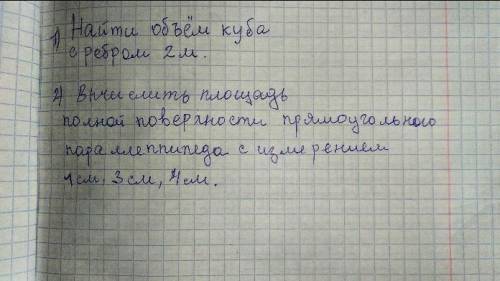 1) Найти объём куба
с ребром 2 м.
2) Вычислить площадь
полной поверхности прямоугольного
параллеппипеда с измерением
1 см, 3 см, 4 см.